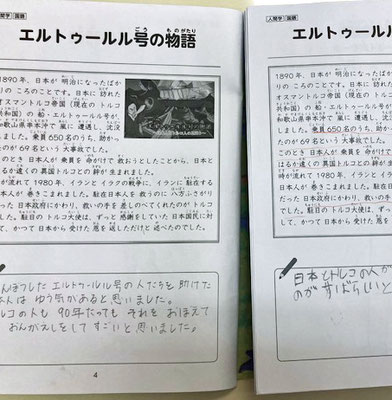 人間学 国語
エルトゥールル号の物語
ごう ものがたり
1890年、日本が明治になったばか
りのころのことです。日本に訪れた
オスマントルコ帝国(現在のトルコ
共和国)の船・エルトゥールル号が、
和歌山県串本沖で嵐に遭遇し、沈没
しました。乗員650名のうち、助かっ
のが69名という大事故でした。
このとき日本人が乗員を命がけで救おうとしたことから、日本と
はるか遠くの異国トルコとの絆が生まれました。
時が流れて1980年、イランとイラクの戦争時に、イランに駐在する
日本人が巻きこまれました。駐在日本人を救うのに八方ふさがり
だった日本政府にかわり、救いの手を差しのべてくれたのがトルコ
でした。駐日のトルコ大使は、ずっと感謝をしていた日本国民に対
して、かつて日本から受けた恩を返しただけと述べたのでした。
んぼつした エルトゥールル号の人たちを助けた
本人は ゆう気があると思いました。
ルコの人も 90年たっても それをおぼえて
おんがえしをして すごいと思いました。
4
人間学 国語
エルトゥールル
1890年、日本が明治になったばか
りのころのことです。日本に訪れた
オスマントルコ帝国(現在のトルコ
共和国)の船・エルトゥールル号が、
和歌山県串本沖で嵐に遭遇し、沈没
しました。乗員650名のうち、助かっ
のが69名という大事故でした。
このとき日本人が乗員を命がけで救
はるか遠くの異国トルコとの絆が生
時が流れて1980年、イランとイラク
日本人が巻きこまれました。駐在日
だった日本政府にかわり、救いの手
でした。駐日のトルコ大使は、ずっ
して、かつて日本から受けた恩を返
日本とトルコの人が
のが すばらしいと